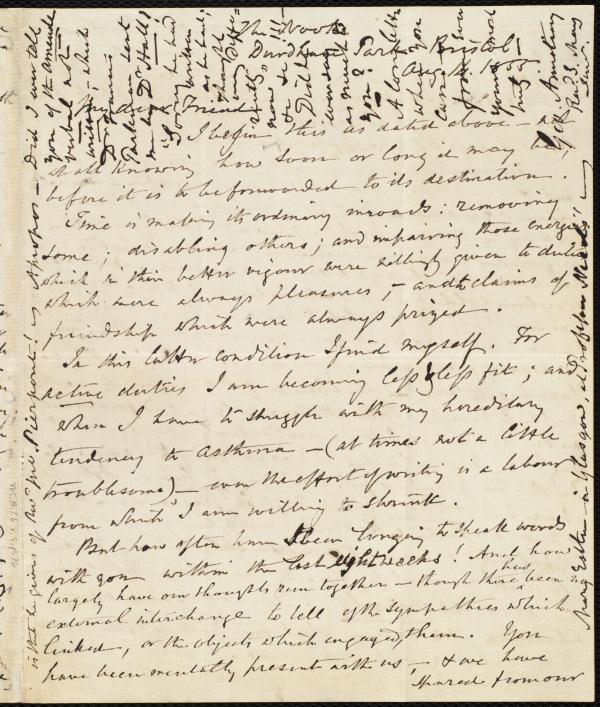 The Nook
Durdham Park Bristol
Aug. 1855
My dear Friend
I begin this as dated above — not
at all knowing how soon or long it may be,
before it is to be forwarded to its destination.
Time is making its ordinary inroads: removing
some; disabling others; and impairing those energies
which in their better vigour were willingly given to duties
which were always pleasures; — and to claims of
friendship which were always prized.
In this latter condition I find myself. For
active duties I am becoming less & less fit; and
when I have to struggle with my hereditary
tendency to asthma — (at times not a little
troublesome) — even the effort of writing is a labour
from which I am willing to shrink.
But how often have I been longing to speak words
with you within the last eight weeks! And how
largely have our thoughts run together — though there has been no
external interchange to tell of the sympathies which
linked, or the objects which engaged, them. You
have been mentally present with us, — & we have
spared from our
is that he grieves of Revd Jno. Pierpont! Apropos — Did I ever tell
you of the
verbal not
written, which
Parkman sent
me by Dr Hall?
Sorry he had
written
as he had;
thought
now
Did he
as much
you?
when you
can
from
yours most